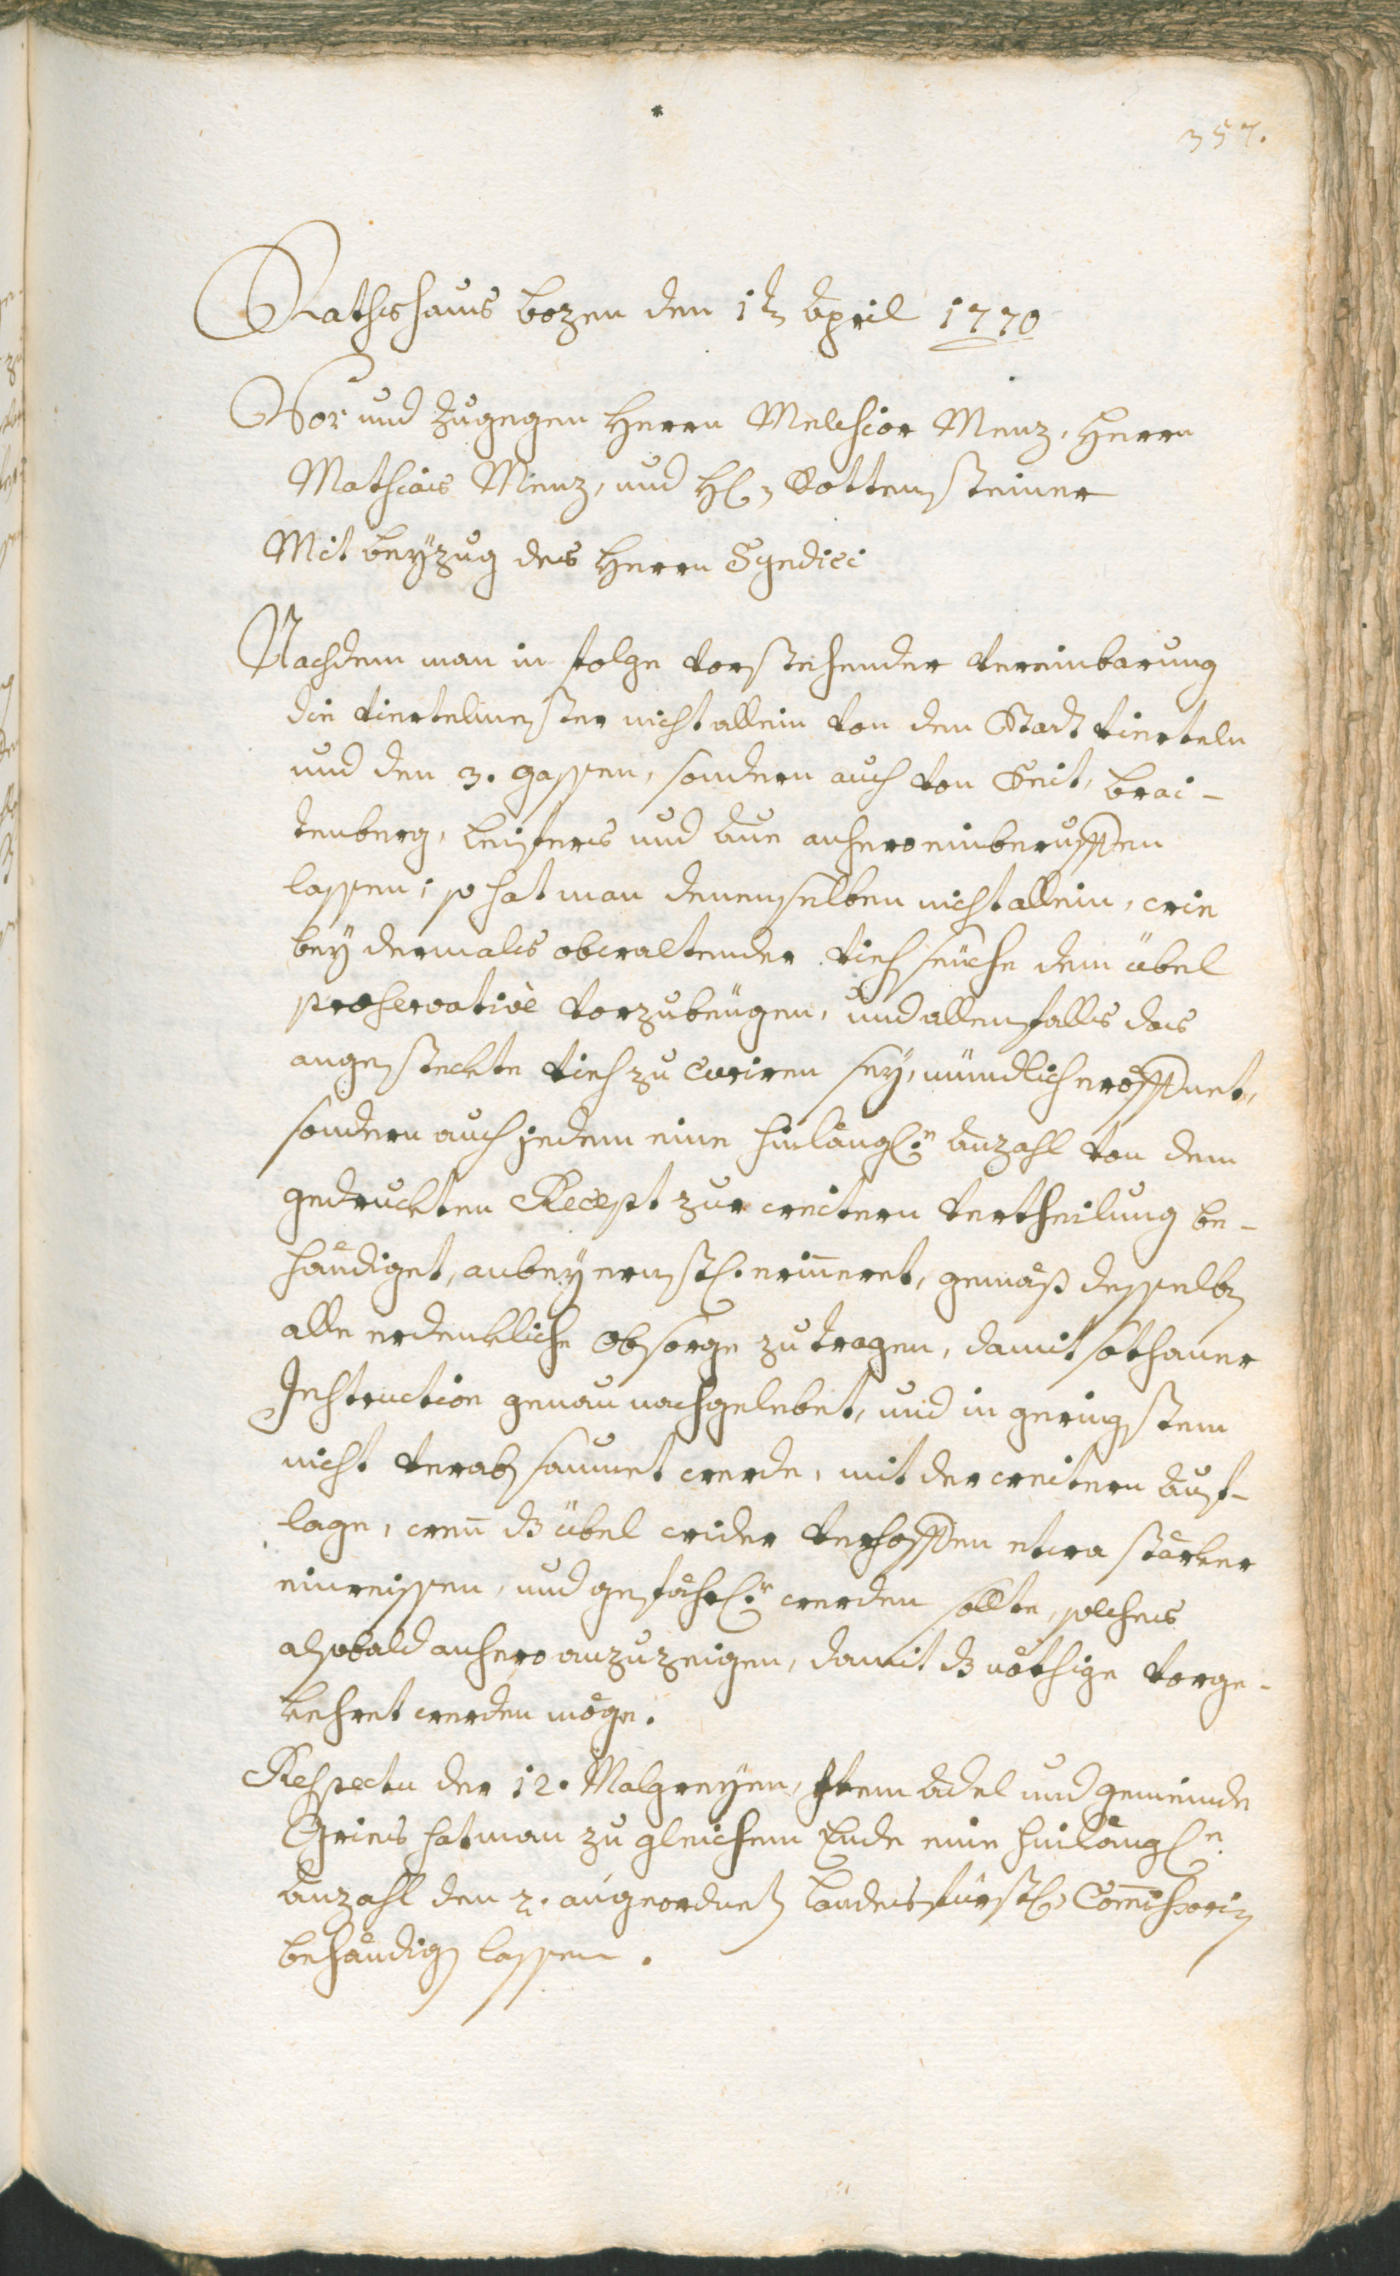 357.
Rathshaus bozen den 1tn April 1770
Vor und zugegen Herrn Melchior Menz, Herrn
Mathias Menz, und H: Gottensteiner
Mit beyzug des Herrn Syndici
Nachdem man in folge vorstehender vereinbarung
die viertelmester nicht allein von den Stadt vierteln
und den 3. gassen, sondern auch von Seit, brai-
tenberg, leifers und aue anhero einberuffen
lassen; so hat man denenselben nicht allein, wie
bey dermals obwaltender viehseüche dem übel
præservativè vorzubeügen, und allenfalls das
angestekte vieh zu Curiren sey, mündlich eröffnet,
sondern auch jedem eine hinlängl:e Anzahl von dem
gedruckten Recept zur weitern vertheilung be-
händiget, anbey ernstl. erinneret, gemäß desselben
alle erdenkliche obsorge zu tragen, damit sothaner
Instruction genau nachgelebet, und in geringstem
nicht verabsaumet werde, mit der weitern Auf-
lage, wen̄ dz übel wider verhoffen etwa stärker
einreissen, und gefährl:r werden sollte, solches
alsobald anhero anzuzeigen, damit dz nöthige vorge-
kehret werden möge.
Respectu der 12. Malgreyen, Item Adel und gemeinde
Gries hat man zu gleichem Ende eine hinlängl:e
Anzahl den 2. angeordneten landesfürstl: Com̄issarien
behändigen lassen.